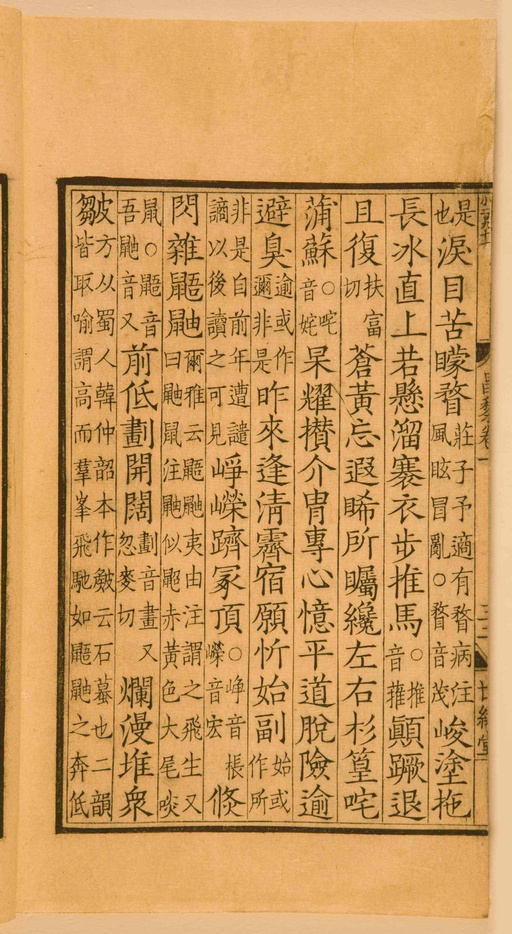 是也淚目苦矇瞀莊子予適有瞀病注風眩冒亂○瞀音茂峻塗拖
長冰直上若懸溜褰衣步推馬○推音蓷顛蹶退
且復扶富切蒼黃忘遐睎所矚纔左右杉篁咤
蒲蘇○咤音姹杲耀攢介冑專心憶平道脫險逾
避臭逾或作邇非是昨來逢清霽宿願忻始副始或作所
非是自前年遭譴謫以後讀之可見崢嶸躋冢頂○崢音棖嶸音宏倏
閃雜鼯鼬爾雅云鼯鼬夷由注謂之飛生又曰鼬鼠注鼬似鼦赤黃色大尾啖
鼠○鼯音吾鼬音又前低劃開闊劃音畫又忽麥切爛漫堆衆
皺方从蜀人韓仲韶本作皴云石蟇也二韻皆取喻謂高而羣峯飛馳如鼯鼬之奔低